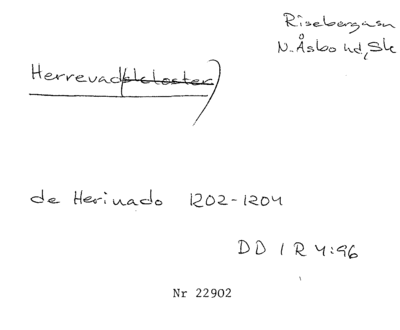 Risebergasn
N. Åsbo hd, Sk
Herrevadskloster
de Herivado 1202-1204
DD 1 R 4:96
Nr 22902